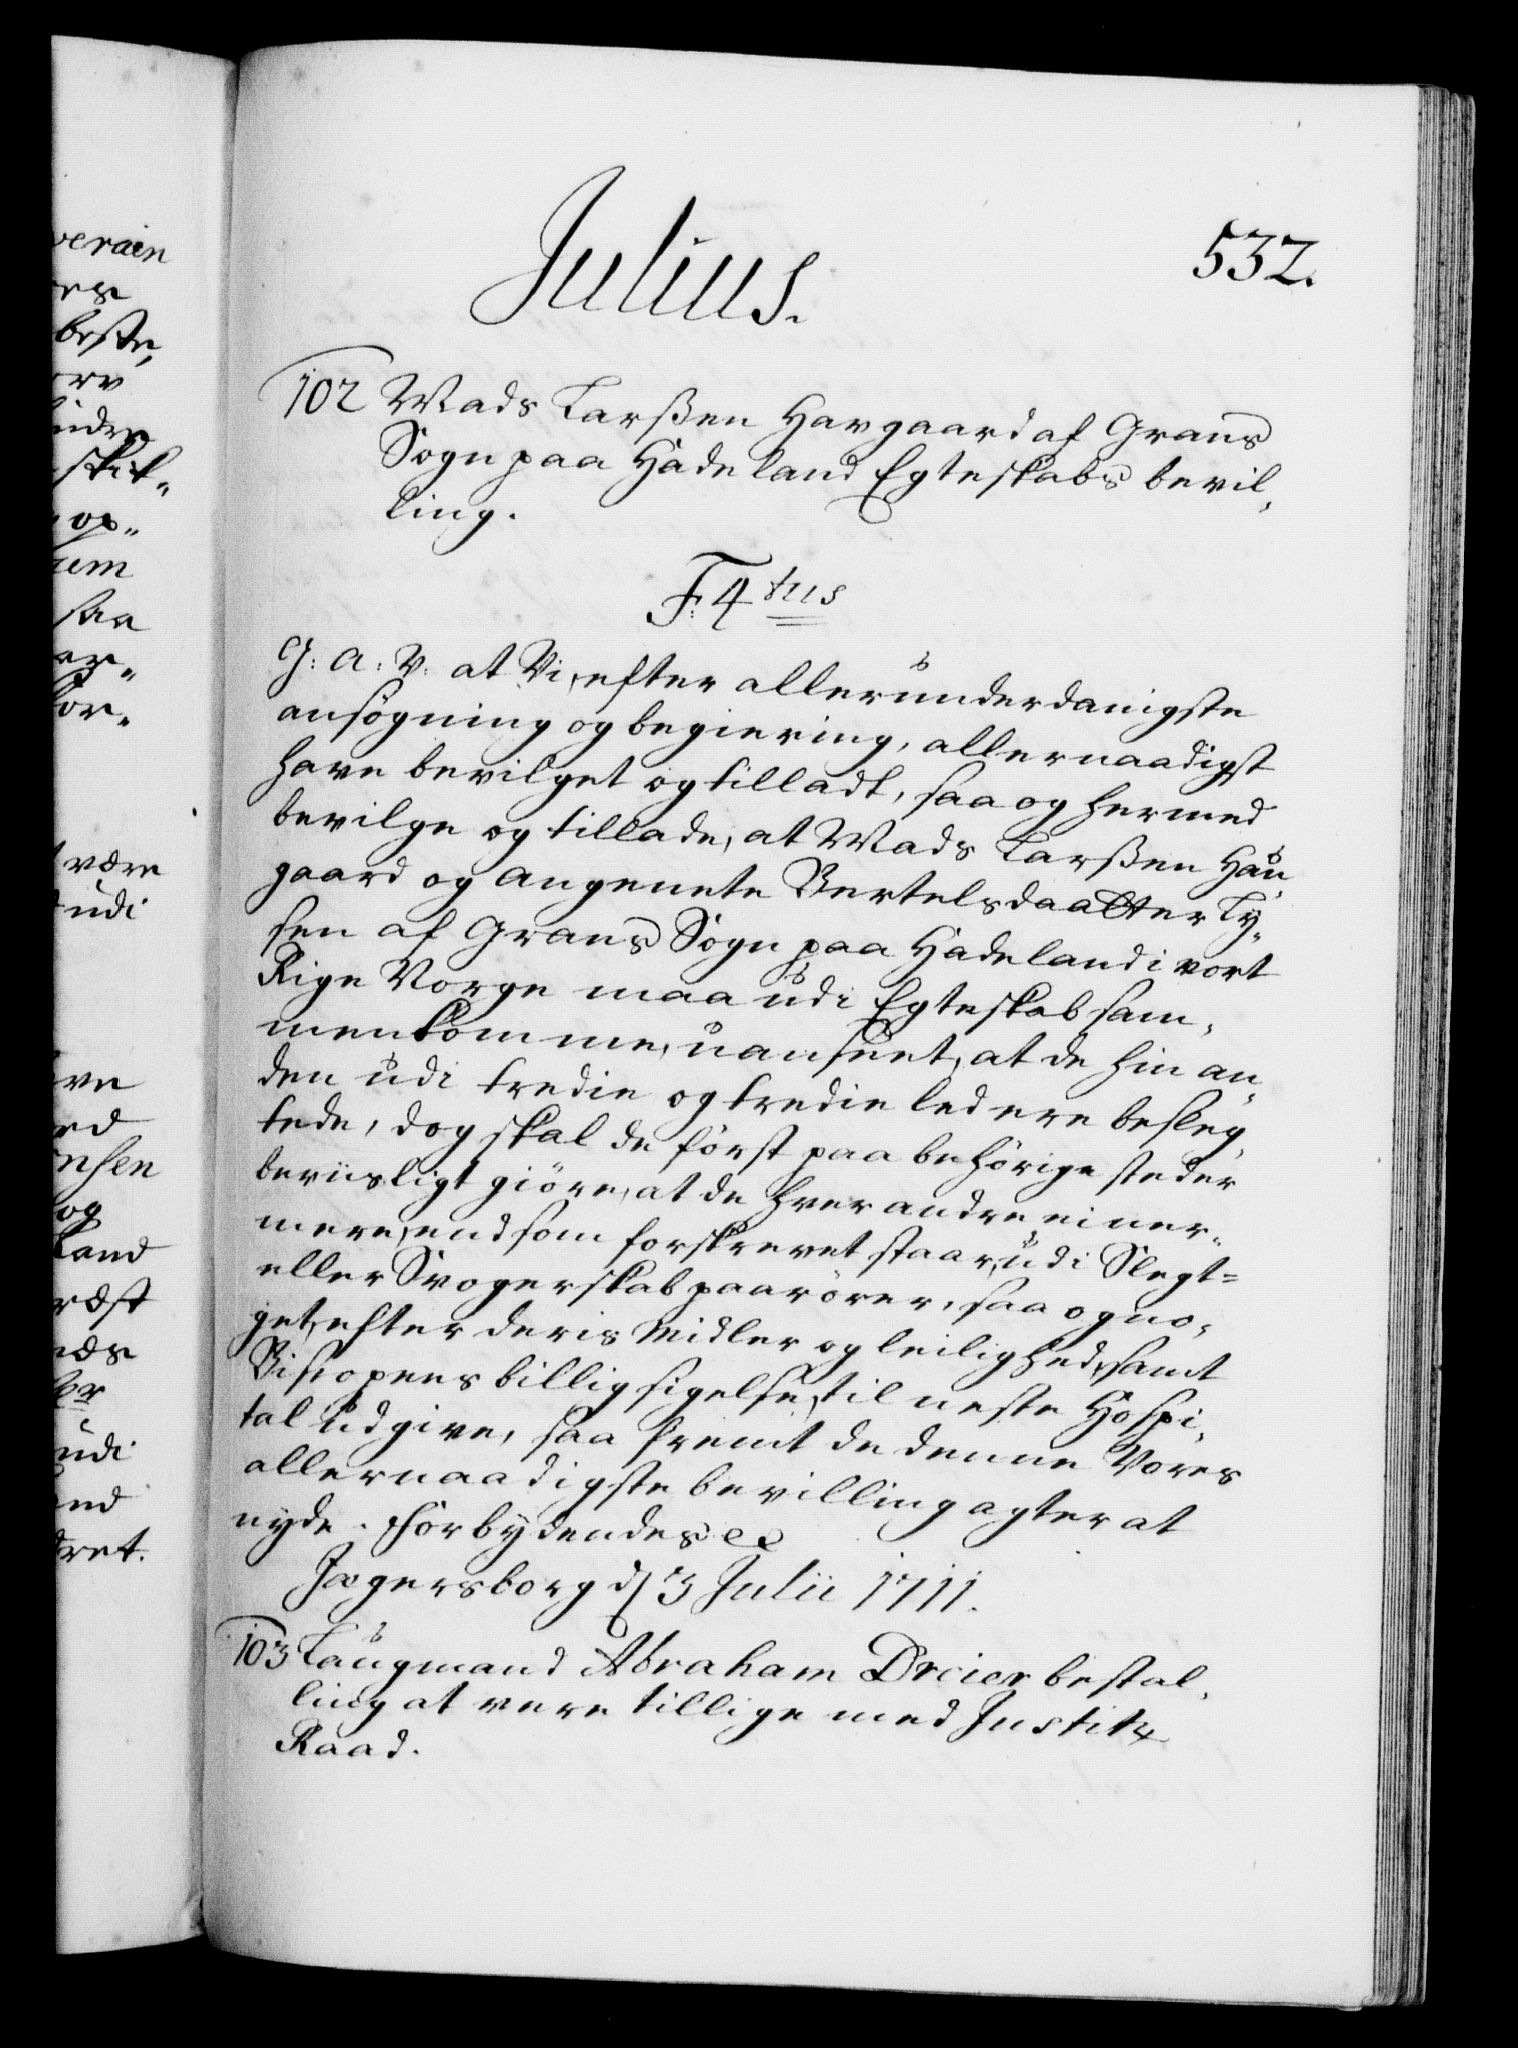 Julius.
532.
102 Mads Larßen Havgaard af Grans
Sogn paa Hadeland Egteskabs bevil,
ling.
F: 4tus
G: A: V: at Vi, efter allerunderdanigste
ansøgning og begiering, allernaadigst
have bevilget og tilladt, saa og hermed
bevilge og tillade, at Mads Larßen Hau
gaard og Angenete Bertelsdaatter Ly,
sen af Grans Sogn paa Hadeland i vort
Rige Norge maa udi Egteskab sam,
menkomme, uanseet, at de hin an,
den udi tredie og tredie led ere besleg,
tede, dog skal de først paa behørige steder
beviisligt giøre, at de hver andre ei ner,,
mere, end som forskrevet staar, udi Slegt=
eller Svogerskab paarører, saa og no,
get, efter deris Midler og leilighed, samt
Bispens billig sigelse, til neste Hospi,
tal udgive, saa fremt de denne Vores
allernaadigste bevilling agter at
nyde. Forbydendes etc
Jægersborg d 3 Julii 1711.
103 Laugmand Abraham Dreier bestal,
ling at vere tillige med Justitz
Raad.
verain
beste,
op,,
um
saa
være
udi
ed
nsen
og
Land
ræst
udi